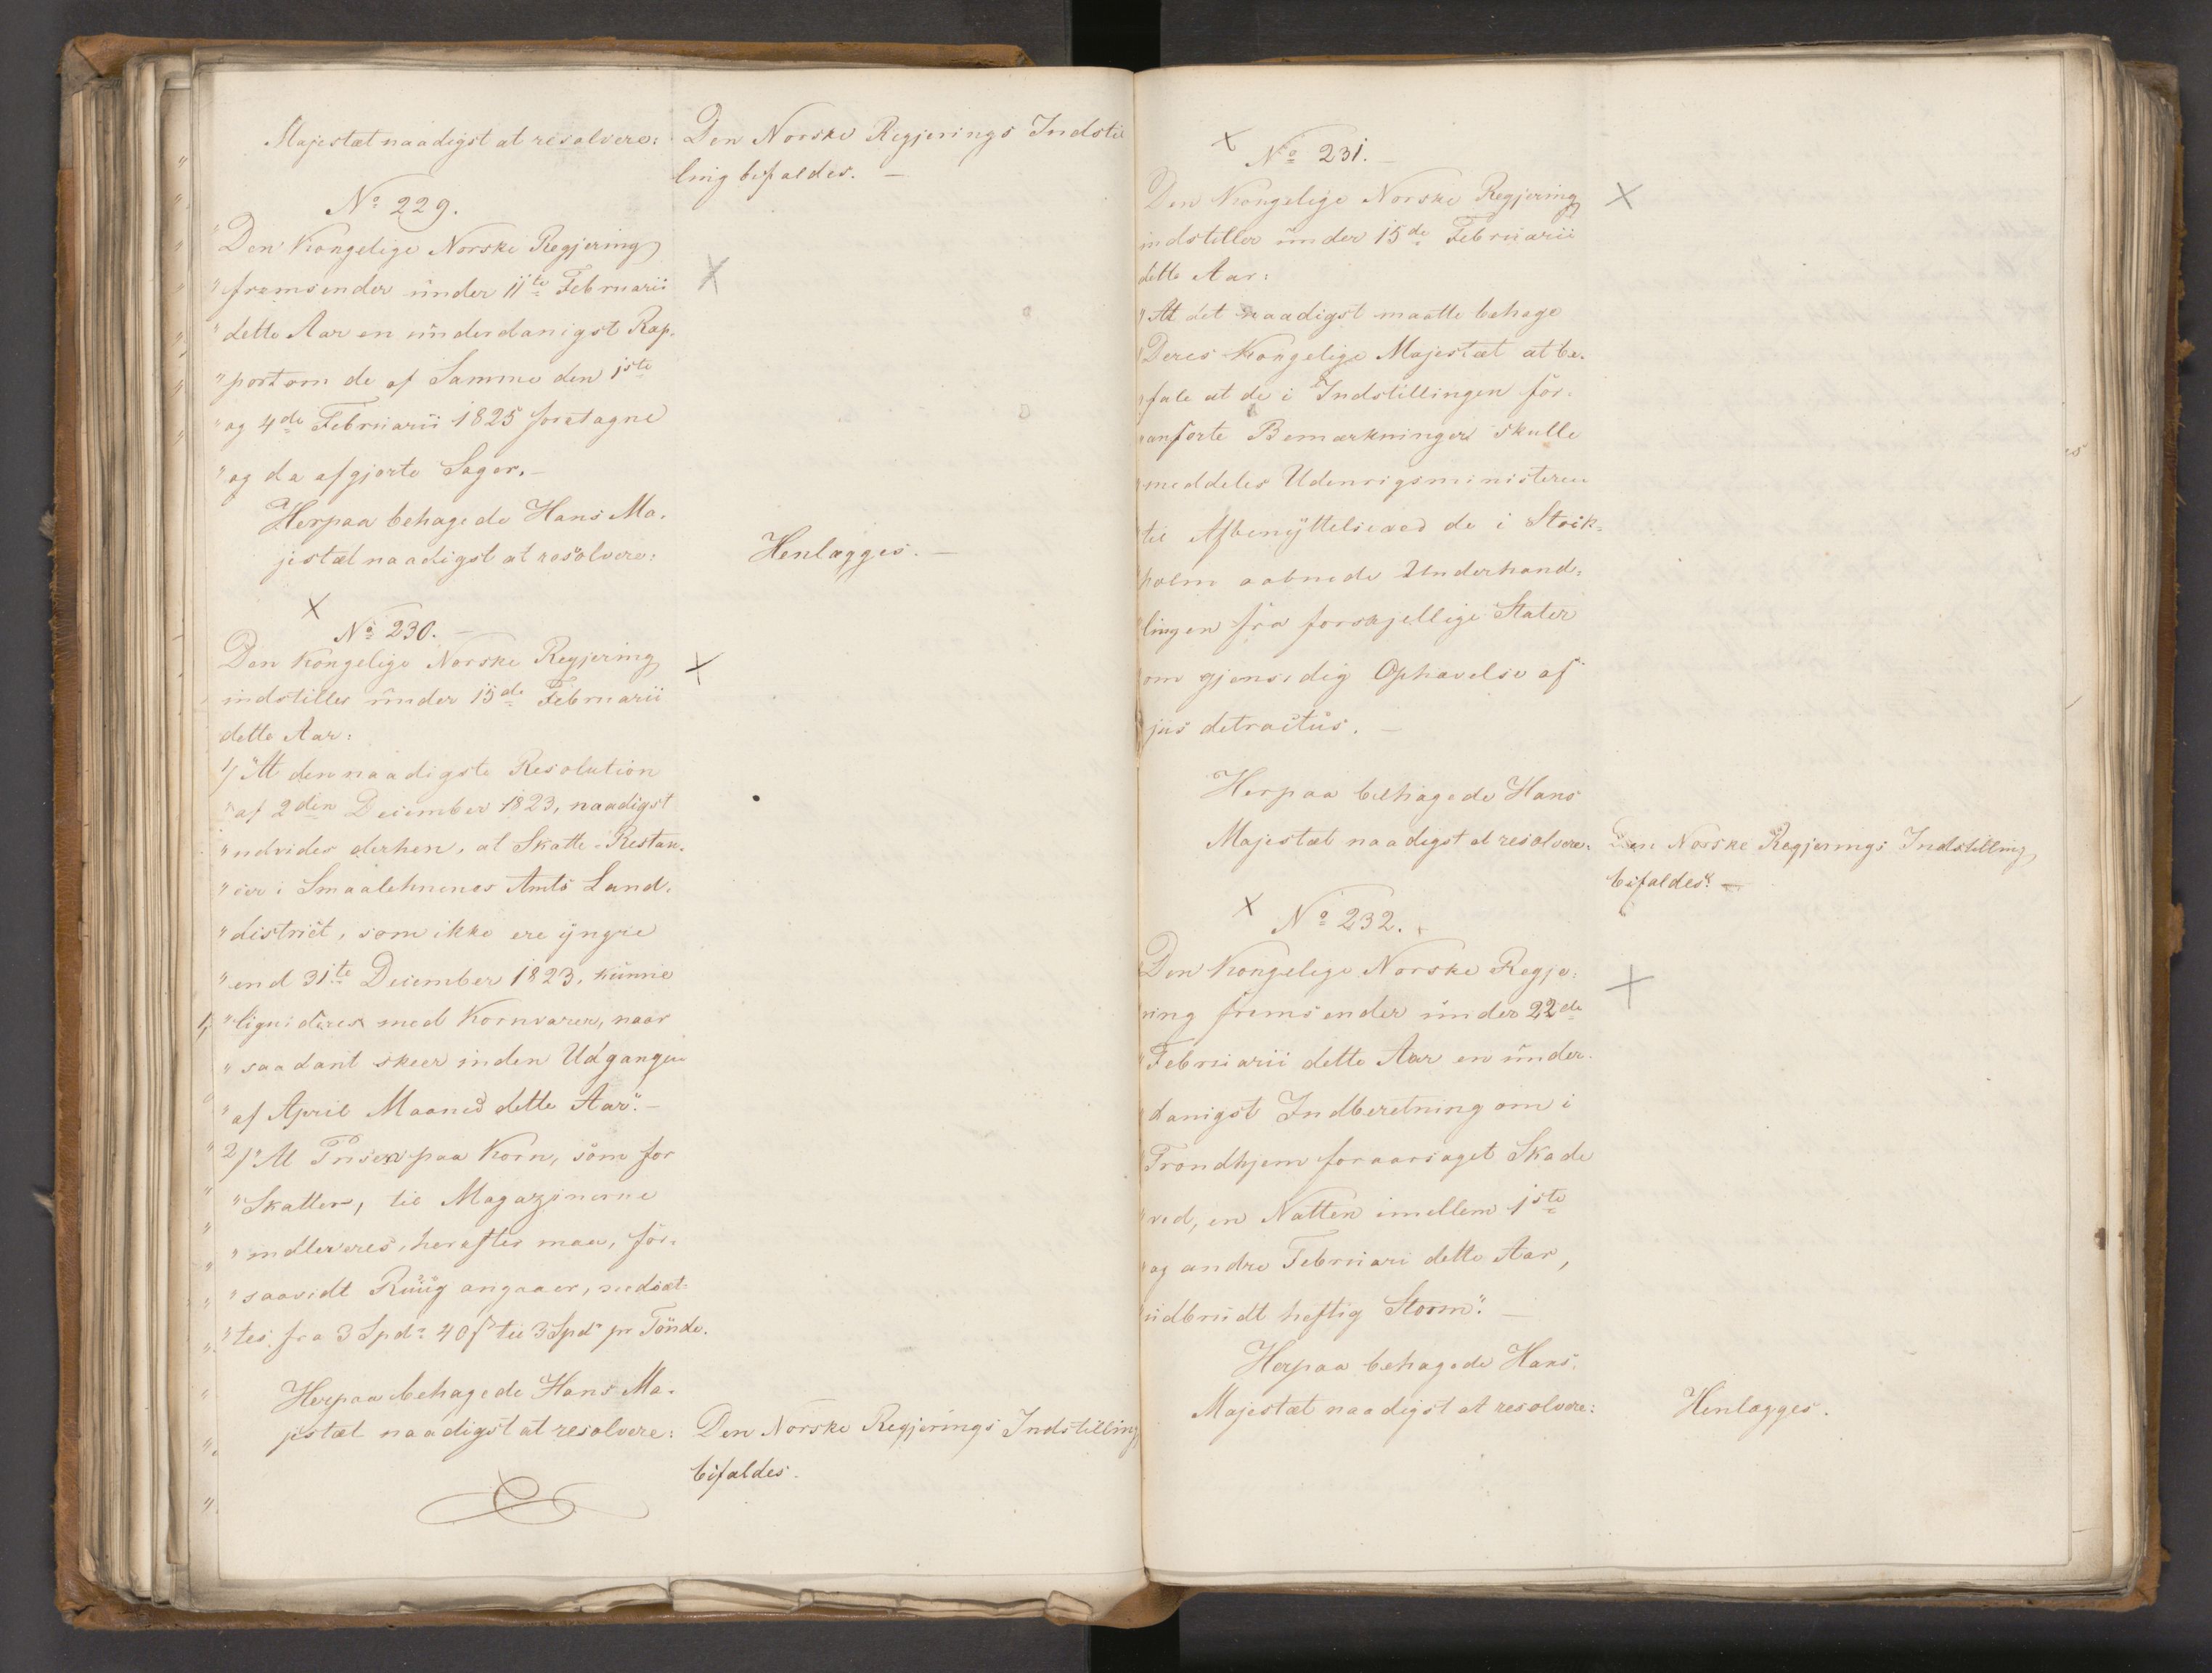 Majestæt naadigst at resolvere:
Den Norske Regjerings Indstil
ling bifaldes. —
No 229.
"Den Kongelige Norske Regjering
"fremsender under 11te Februarii
"dette Aar en underdanigst Rap-
"port om de af Samme den 1ste
"og 4de Februarii 1825 foretagne
"og da afgjorte Sager. —
Herpaa behagede Hans Ma-
jestæt naadigst at resolvere:
Henlægges. —
No 230. —
Den Kongelige Norske Regjering
indstiller under 15de Februarii
dette Aar:
1/ "At den naadigste Resolution
"af 2den December 1823, naadigst
"udvides derhen, at Skatte-Restan-
"cer i Smaalehnenes Amts Land-
"district, som ikke ere yngre
"end 31te December 1823, kunne
"liquideres med Kornvarer, naar
"saadant skeer inden Udgangen
"af April Maaned dette Aar". —
2/ "At Prisen paa Korn, som for
"Skatter, til Magazinerne
"indleveres, herefter maa, for-
"saavidt Ruug angaaer, nedsæt-
"tes fra 3 Spdr 40 ß til 3 Spdr pr Tönde.
Herpaa behagede Hans Ma-
jestæt naadigst at resolvere:
Den Norske Regjerings Indstilling
bifaldes.
No 231. —
Den Kongelige Norske Regjering
indstiller under 15de Februarii
dette Aar:
"At det naadigst maatte behage
"Deres Kongelige Majestæt at be-
"fale at de i Indstillingen for-
"anförte Bemærkninger skulle
"meddeles Udenrigsministeren
"til Afbenyttelse ved de i Stock-
"holm aabnede Underhand-
"lingen fra forskjellige Stater
"om gjensidig Ophævelse af
"jus detractus. —
Herpaa behagede Hans
Majestæt naadigst at resolvere:
Den Norske Regjerings Indstilling
bifaldes. —
No 232.
Den Kongelige Norske Regje-
ring fremsender under 22de
"Februarii dette Aar en under-
"danigst Indberetning om i
"Trondhjem foraarsaget Skade
"ved, en Natten imellem 1ste
"og andre Februari dette Aar,
"udbrudt heftig Storm". —
Herpaa behagede Hans
Majestæt naadigst at resolvere:
Henlægges.